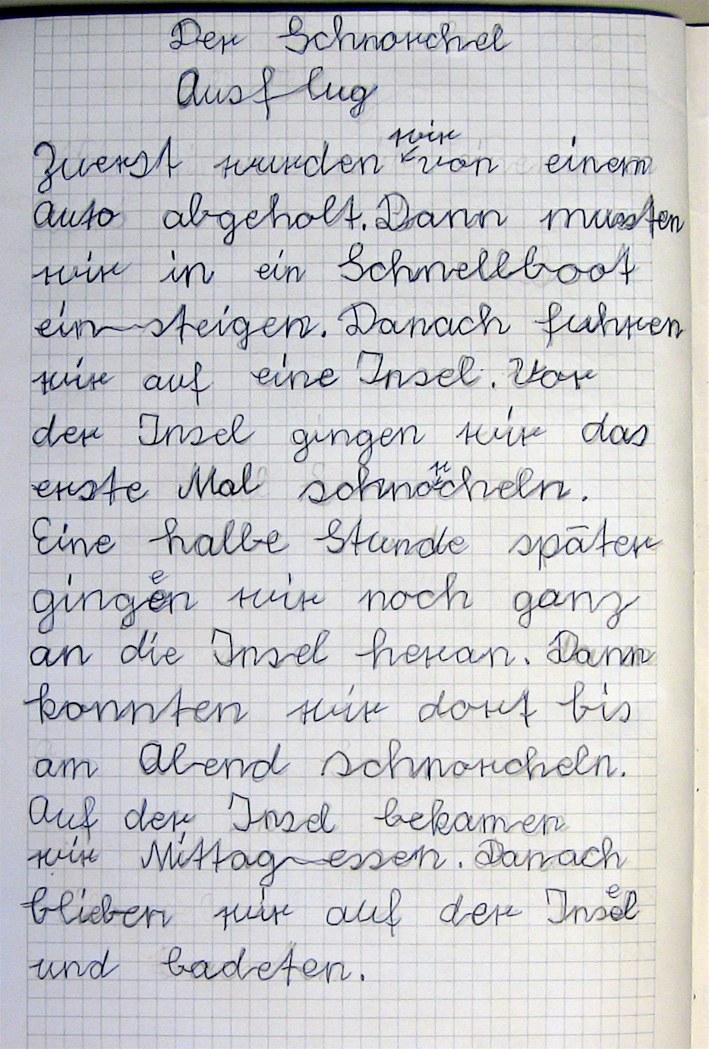 Der Schnorchel
Ausflug
Zuerst wurden wir von einem
Auto abgeholt. Dann mussten
wir in ein Schnellboot
ein steigen. Danach fuhren
wir auf eine Insel. Vor
der Insel gingen wir das
erste Mal schnorcheln.
Eine halbe Stunde später
gingen wir noch ganz
an die Insel heran. Dann
konnten wir dort bis
am Abend schnorcheln.
Auf der Insel bekamen
wir Mittag essen. Danach
blieben wir auf der Insel
und badeten.